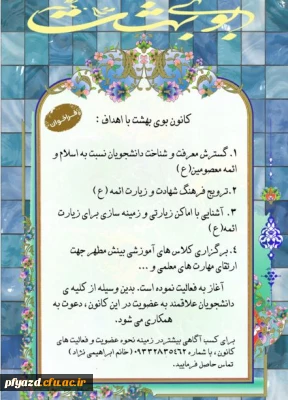 بوی بهشت
فراخوان
کانون بوی بهشت با اهداف :
۱. گسترش معرفت و شناخت دانشجویان نسبت به اسلام و
ائمه معصومین(ع)
۲.ترویج فرهنگ شهادت و زیارت ائمه (ع)
۳. آشنایی با اماکن زیارتی و زمینه سازی برای زیارت
ائمه(ع)
۴. برگزاری کلاس های آموزشی بینش مطهر جهت
ارتقای مهارت های معلمی و ...
آغاز به فعالیت نموده است. بدین وسیله از کلیه ی
دانشجویان علاقمند به عضویت در این کانون، دعوت به
همکاری می شود.
برای کسب آگاهی بیشتردر زمینه نحوه عضویت و فعالیت های
کانون ، با شماره ۰۹۳۳۲۸۳۵۴۶۲ (خانم ابراهیمی نژاد)
تماس حاصل فرمایید.
pfyazd.cfu.ac.ir